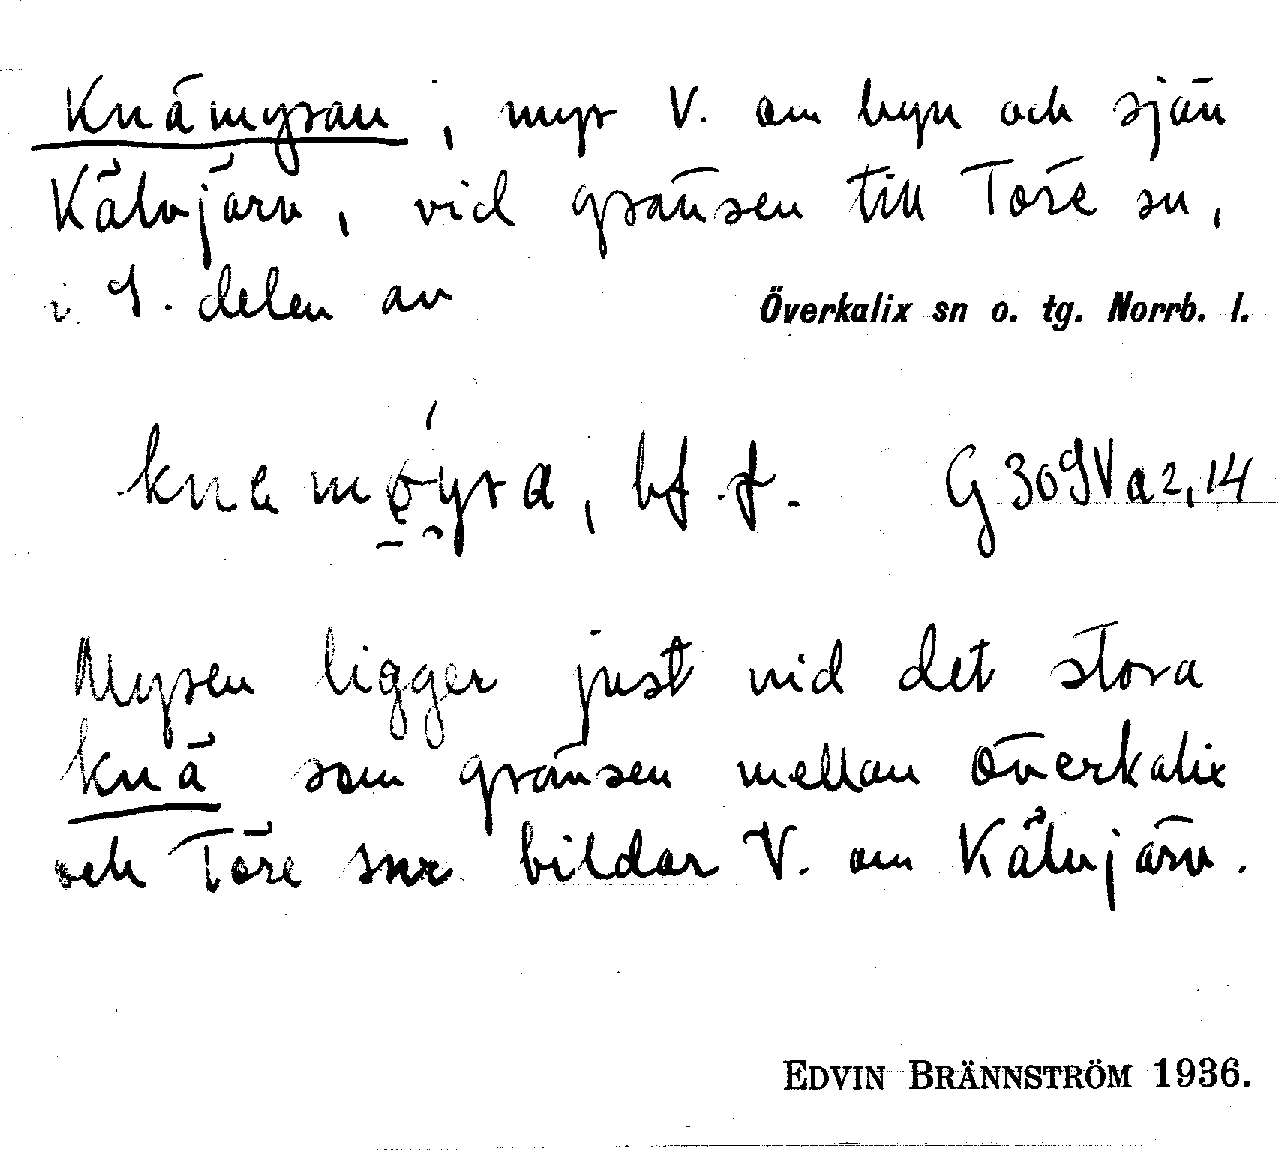 Knämyran, myr V. om byn och sjön
Kälvjärv, vid gränsen till Töre sn,
i S. delen av Överkalix sn o. tg. Norrb. l.
bf f. G 309 V a 2, 14
Myren ligger just vid det stora
knä som gränsen mellan Överkalix
och Töre snr bildar V. om Kälvjärv.
EDVIN BRÄNNSTRÖM 1936.